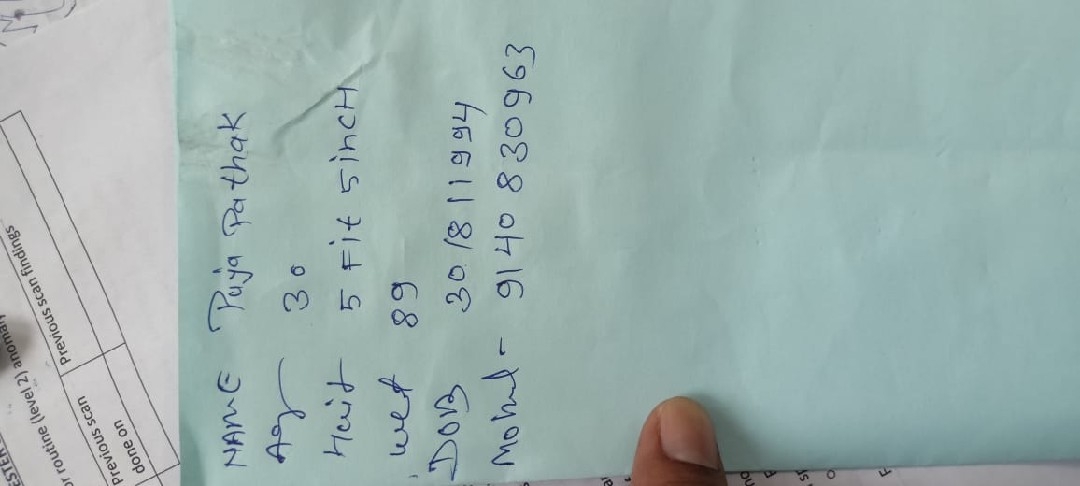 NAME Puja Pathak
Ag 30
Heit 5 Fit 5incH
wet 89
DOB 30/8/1994
Mobil - 9140830963
Previous scan findings
Previous scan
done on
r routine (level 2) anomaly